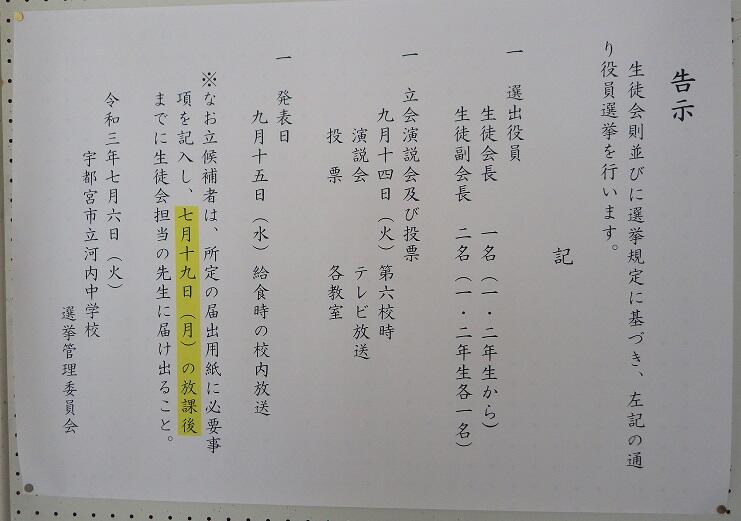 告示
生徒会則並びに選挙規定に基づき、左記の通
り役員選挙を行います。
記
一　選出役員
生徒会長　一名（一・二年生から）
生徒副会長　二名（一・二年生各一名）
一　立会演説会及び投票
九月十四日（火）第六校時
演説会　テレビ放送
投票　各教室
一　発表日
九月十五日（水）給食時の校内放送
※なお立候補者は、所定の届出用紙に必要事
項を記入し、七月十九日（月）の放課後
までに生徒会担当の先生に届け出ること。
令和三年七月六日（火）
宇都宮市立河内中学校
選挙管理委員会